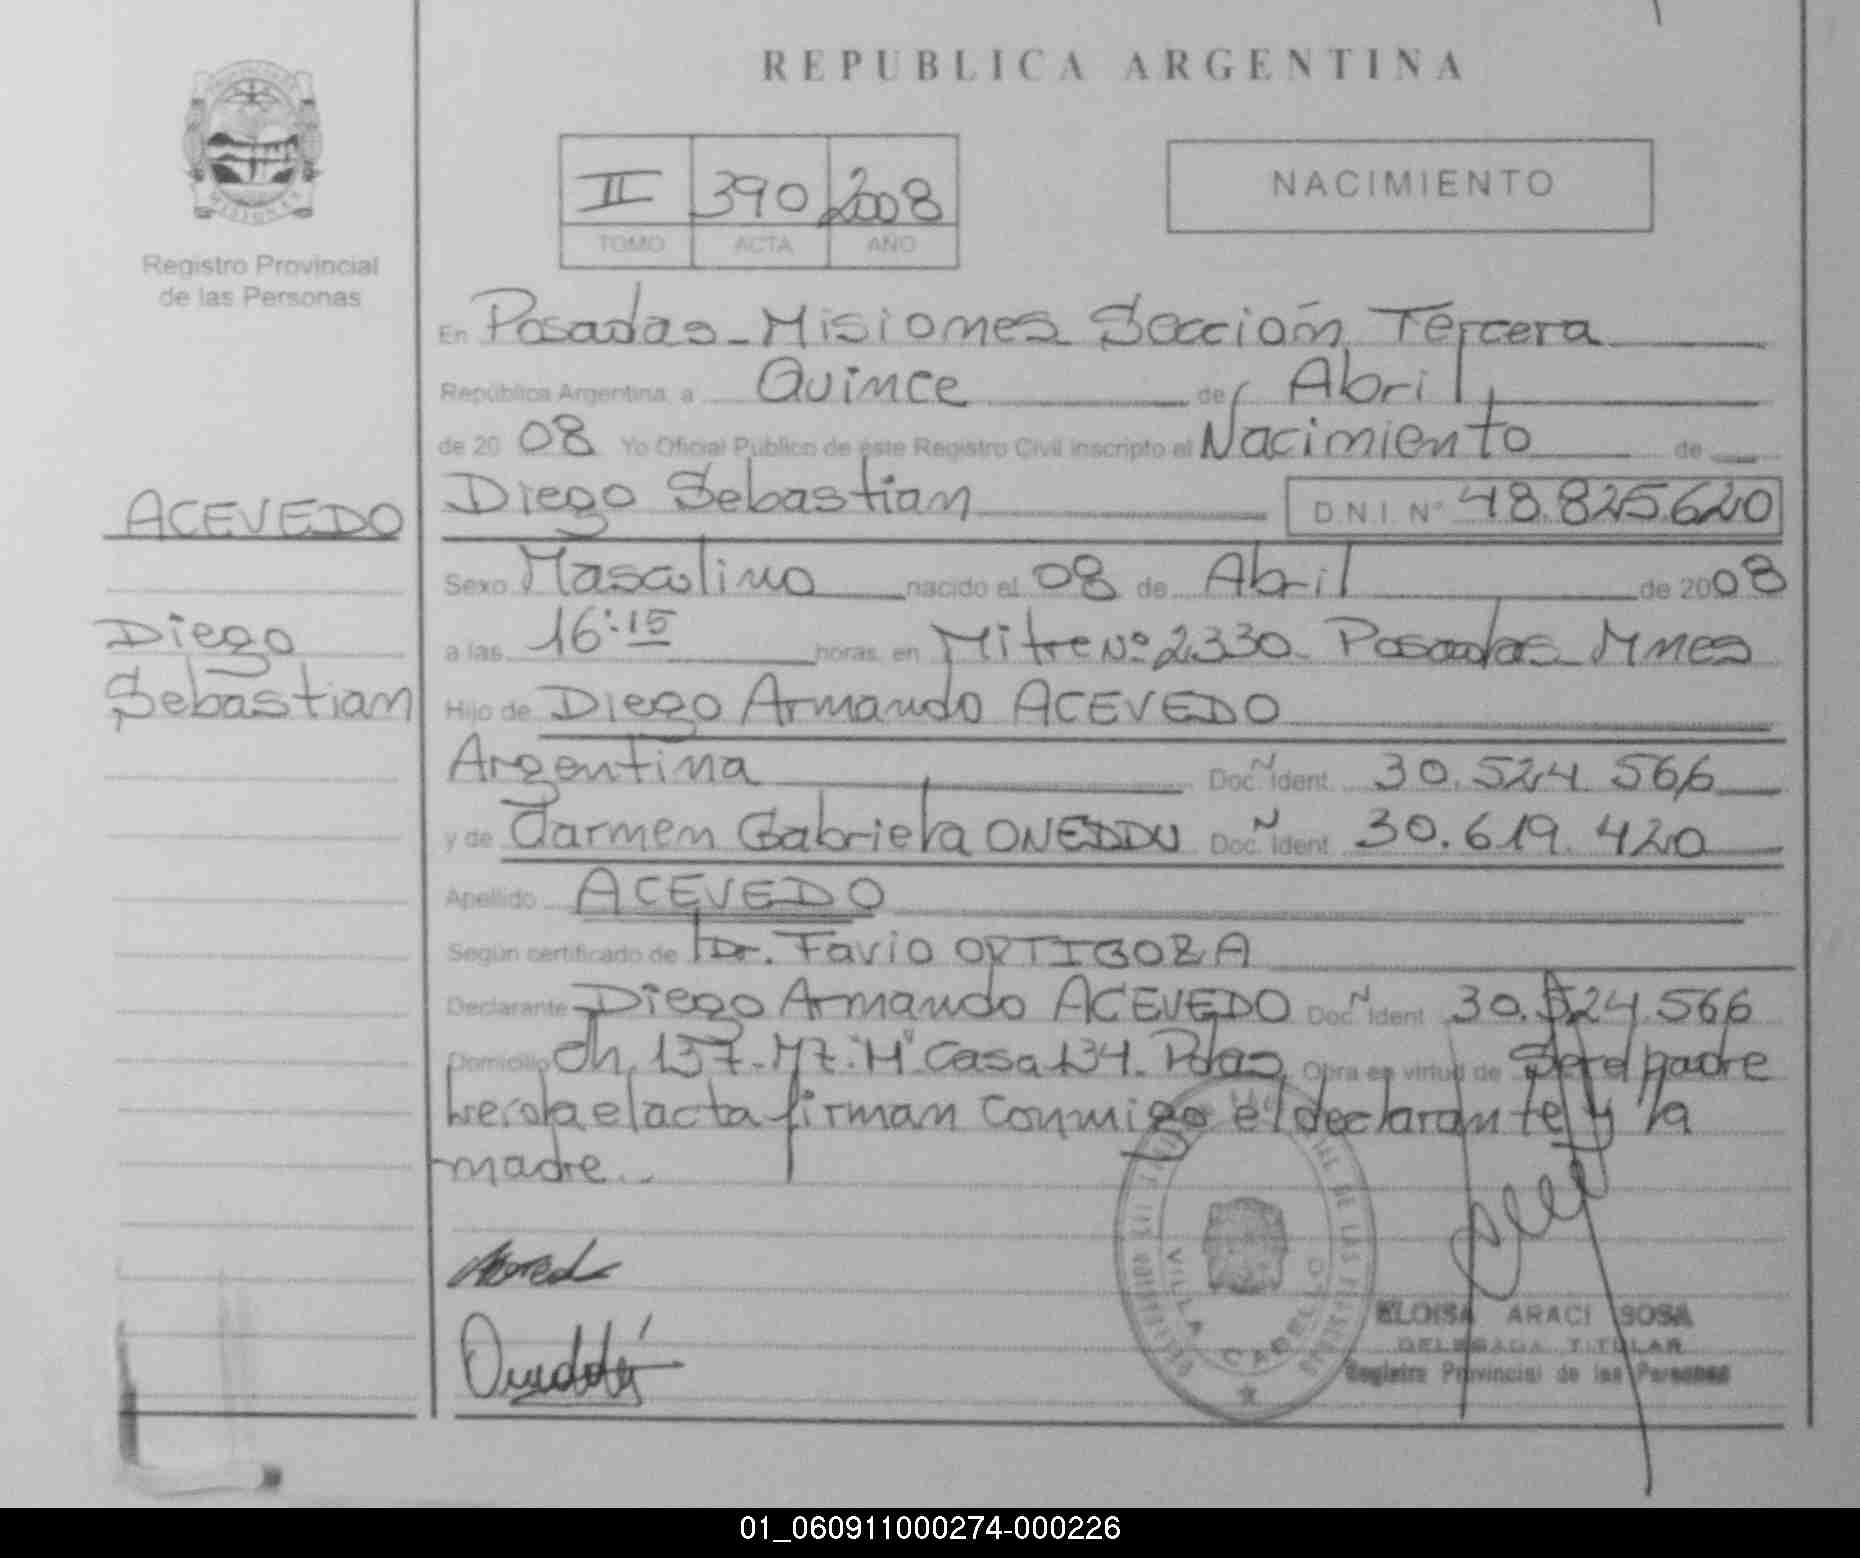 REPUBLICA ARGENTINA
MISIONES
Registro Provincial
de las Personas
II 390 2008
TOMO ACTA AÑO
NACIMIENTO
En Posadas - Misiones Sección Tercera
República Argentina, a Quince de Abril
de 2008 Yo Oficial Público de este Registro Civil inscripto el Nacimiento de
ACEVEDO
Diego
Sebastian
Diego Sebastian D.N.I. Nº 48.825.620
Sexo Masculino nacido el 08 de Abril de 2008
a las 16:15 horas, en Mitre Nº 2330 - Posadas - Mnes
Hijo de Diego Armando ACEVEDO
Argentina Doc. Ident. 30.524.566
y de Carmen Gabriela ONEDDU Doc. Ident. 30.619.420
Apellido ACEVEDO
Según certificado de Dr. Favio ORTIGOZA
Declarante Diego Armando ACEVEDO Doc. Ident. 30.524.566
Domicilio Ch. 137 - Mz. "H" Casa 134 - Pdas Obra en virtud de Ser el padre
Leída el acta firman conmigo el declarante y la
madre..
VILLA CABELLO
ELOISA ARACI SOSA
DELEGADA TITULAR
Registro Provincial de las Personas
01_060911000274-000226